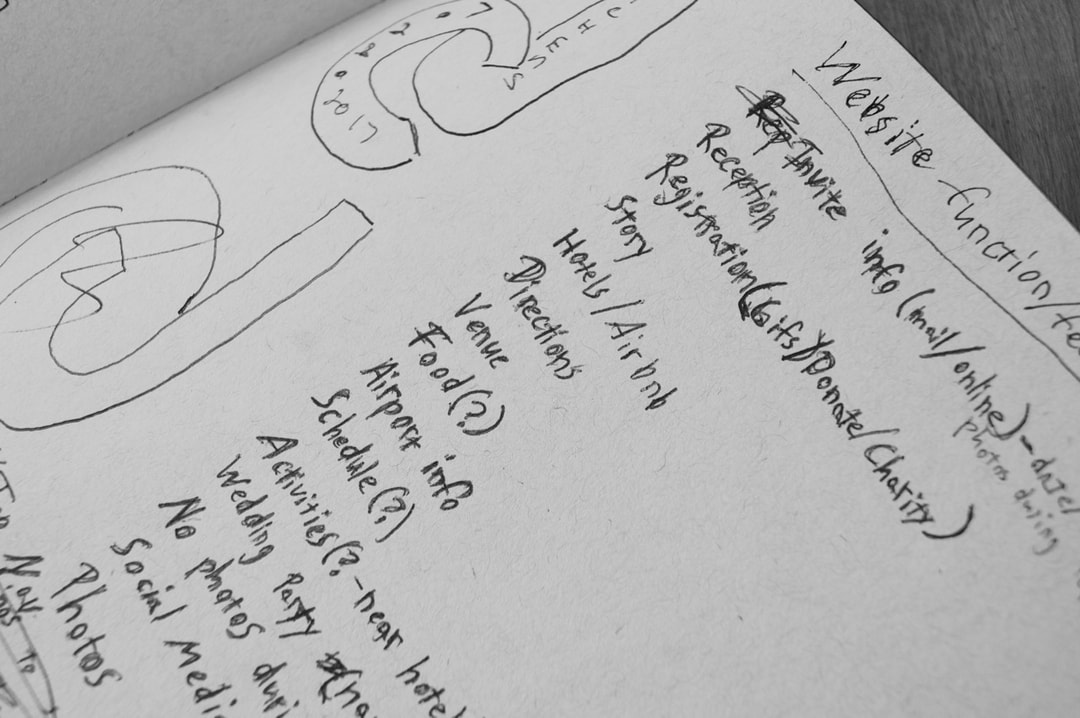 2017
Website function/fe
Invite info (mail/online) - date/
photos during
Reception
Registration (Gifs)/Donate/Charity)
Story
Hotels/Airbnb
Directions
Venue
Food(?)
Airport info
Schedule(?)
Activities(?-near hotel
Wedding Party (na
No photos duri
Social Medi
Photos
to